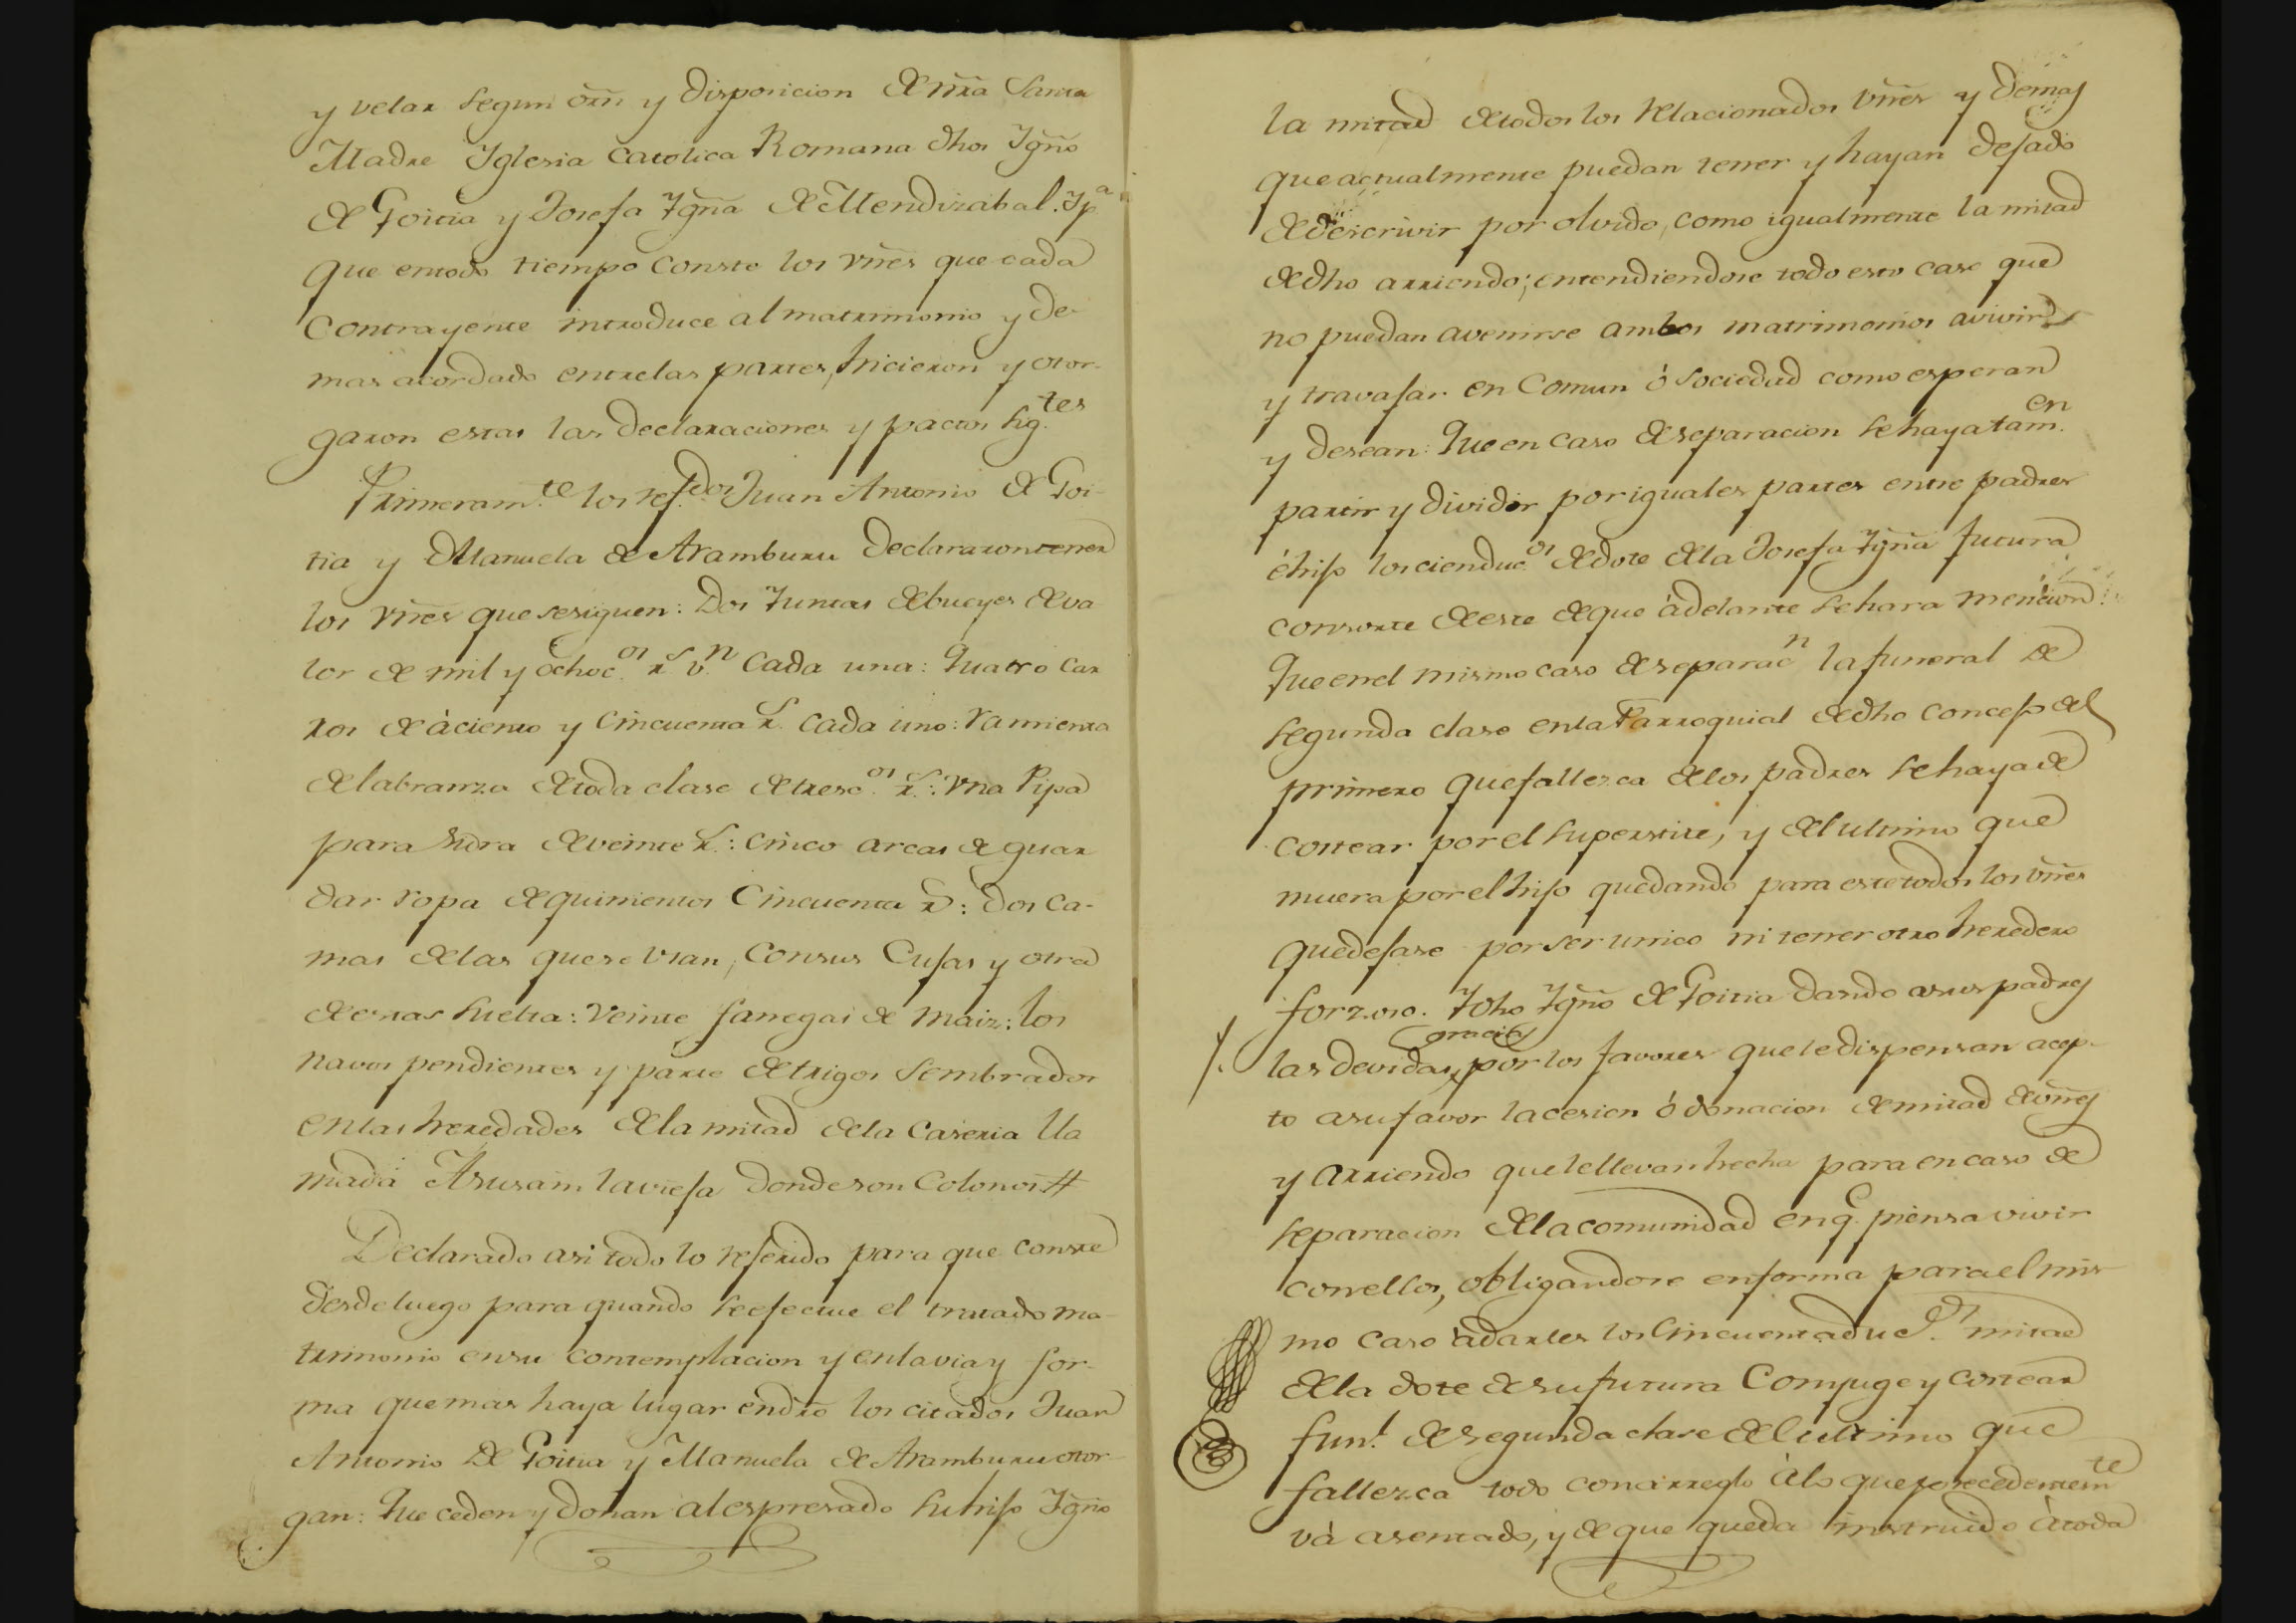 y velar segun orn̄ y disposicion de nrã Santa
Madre Yglesia catolica Romana dhos Ygñō
de Goitia y Josefa Ygñā de Mendizabal. Y pª
que entodo tiempo conste los vñes que cada
contrayente introduce al matrimonio y de-
mas acordado entrelas partes, hicieron y otor-
garon estas las declaraciones y pactos sig.tes
Primeram.te los ref.dos Juan Antonio de Goi-
tia y Manuela de Aramburu declararon tener
los vñes que sesiguen: Dos Yuntas de bueyes de va
lor de mil y ochoc.os r.s v.n cada una: Quatro car
ros de àciento y cincuenta r.s cada uno: ramienta
de labranza de toda clase de tresc.os r.s: Una Pipa
para sidra de veinte r.s: cinco arcas de guar
dar ropa de quinientos cincuenta r.s: dos ca-
mas de las que se usan, consus Cujas y otra
de estas suelta: veinte fanegas de maiz: los
navos pendientes y parte de trigos sembrados
en las heredades de la mitad de la caseria lla
mada Asusain laviefa donde son Colonos #
Declarado asi todo lo referido para que conste
desde luego para quando se efectue el tratado ma-
trimonio ensu contemplacion y enla via y for-
ma que mas haya lugar en dr̃o los citados Juan
Antonio de Goitia y Manuela de Aramburu otor-
gan: Que ceden y donan al espresado su hijo Ygñō
la mitad de todos los relacionados vñes y demas
que actualmente puedan tener y hayan dejado
de descrivir por olvido, como igualmente la mitad
de dho arriendo; entendiendose todo esto caso que
no puedan avenirse ambos matrimonios avivir
y travajar en comun ó sociedad como esperan
y desean: Que en caso de separacion se haya tam.en
partir y dividir por iguales partes entre padres
é hijo los cien duc.os de dote de la Josefa Ygñā futura
consorte de este de que àdelante se hara mencion.
Que en el mismo caso de separac.n la funeral de
segunda clase en la Parroquial de dho concejo del
primero que fallezca de los padres se haya de
costear por el superstite, y del ultimo que
muera por el hijo quedando para este todos los vñes
que dejase por ser unico ni tener otro heredero
forzoso. Y dho Ygñō de Goitia dando asus padres
las devidas gracias por los favores que le dispensan acep-
to asu favor la cesion ó donacion de mitad de vñes
y arriendo que le llevan hecha para en caso de
separacion de la comunidad en q.e piensa vivir
con ellos, obligandose en forma para el mis
mo caso àdarles los cincuenta duc.os mitad
de la dote de su futura Conyuge y costear
fun.l de segunda clase del ultimo que
fallezca todo con arreglo àlo que precedentem.te
và asentado, y de que queda instruido àtoda